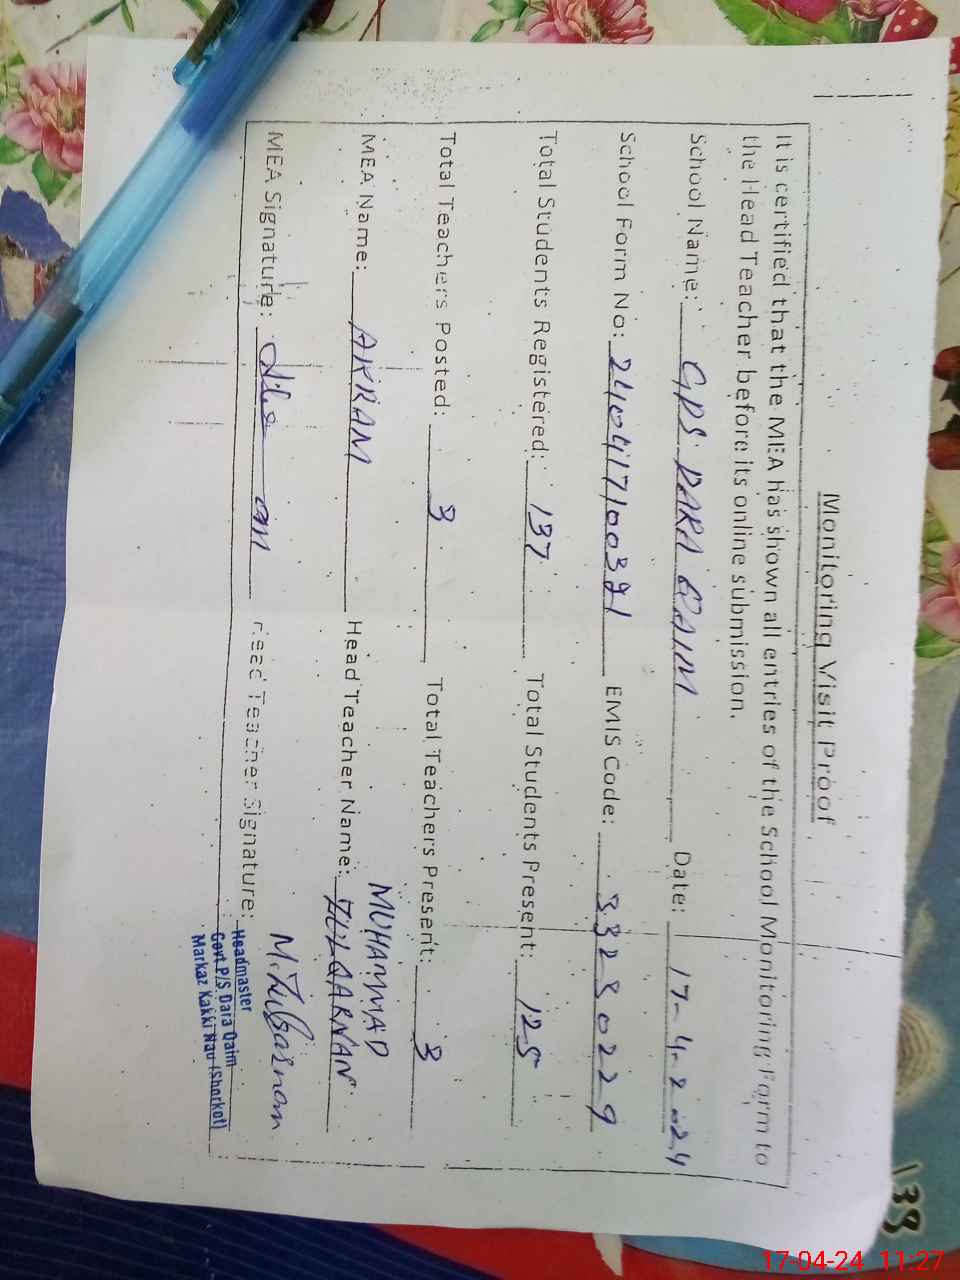 Monitoring Visit Proof
It is certified that the MEA has shown all entries of the School Monitoring Form to
the Head Teacher before its online submission.
School Name: GPS DARA QAIM Date: 17-4-2024
School Form No: 240417100321 EMIS Code: 33230229
Total Students Registered: 137 Total Students Present: 125
Total Teachers Posted: 3 Total Teachers Present: 3
MEA Name: AKRAM Head Teacher Name: MUHAMMAD ZULQARNAN
MEA Signature: Head Teacher Signature: M.Zulqarnan
Headmaster
Govt P/S Dara Qaim
Markaz Kakki Nau (Shorkot)
138
17-04-24 11:27